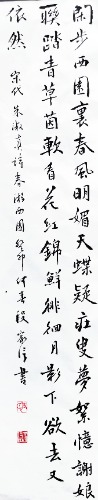 閑步西園裏春風明媚天蝶疑庄叟夢絮憶謝娘
聯踏青草茵軟看花紅錦鮮徘徊月影下欲去又
依然 宋代朱淑真詩春游西園癸卯仲春段家信書